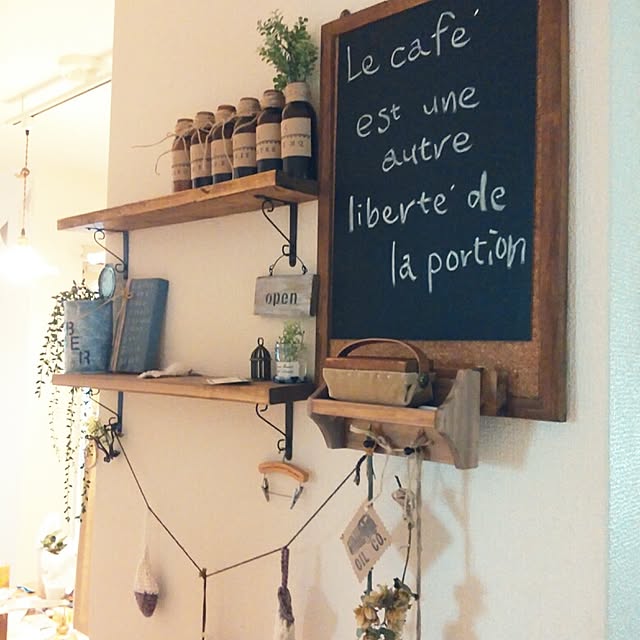 Le café
est une
autre
liberté de
la portion
open
BE
ER
OIL CO.